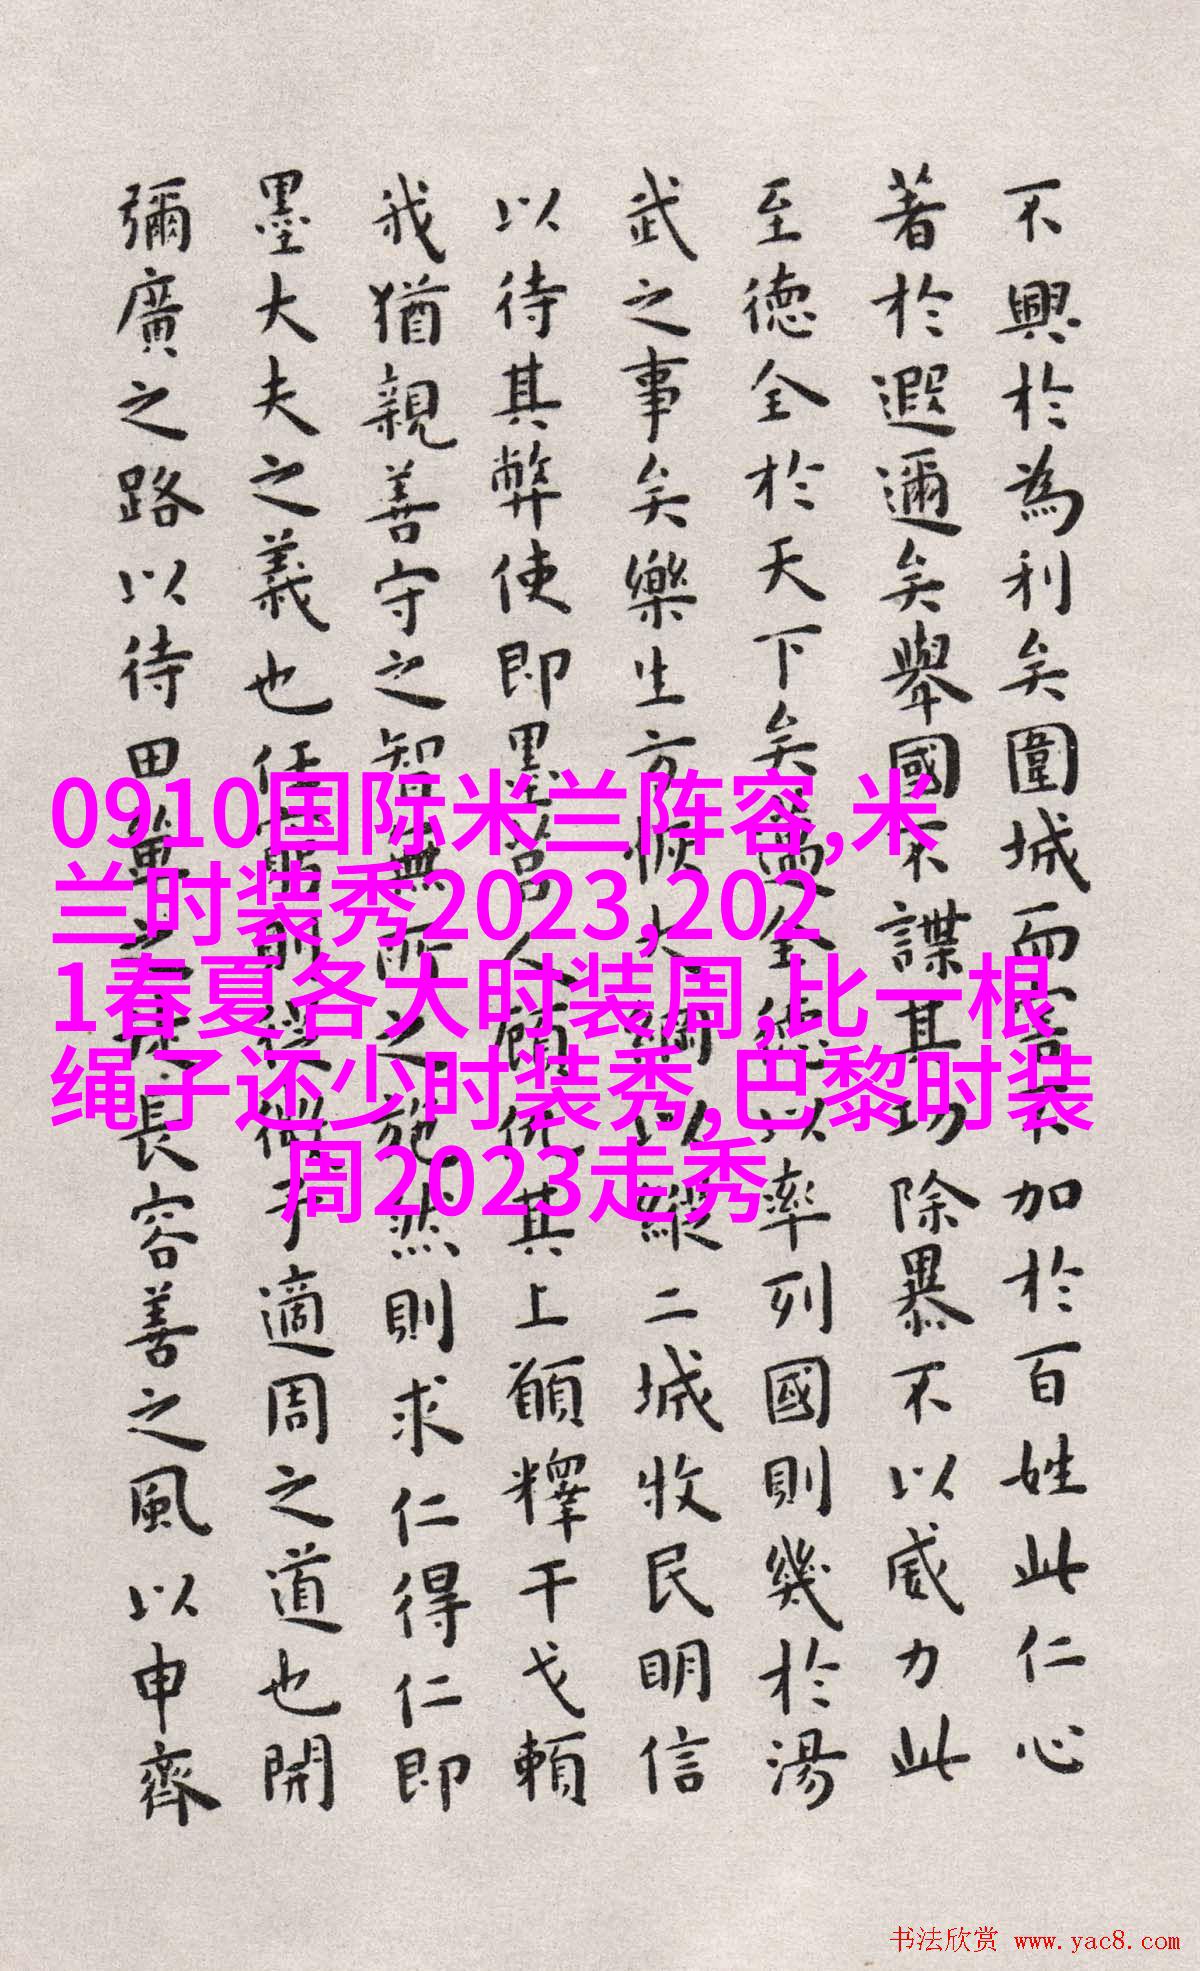 不興於為利矣圍城而害不加於百姓此仁心
著於遐邇矣舉國不謀其功除暴不以威力此
至德全於天下矣邁全德以率列國則幾於湯
武之事矣樂生方恢大綱以縱二城收民明信
以待其弊使即墨莒人顧仇其上願釋干戈賴
我猶親善守之智無所之施然則求仁得仁即
墨大夫之義也任窮則從微子適周之道也開
彌廣之路以待田單之徒長容善之風以申齊
0910国际米兰阵容,米
兰时装秀2023,202
1春夏各大时装周,比一根
绳子还少时装秀,巴黎时装
周2023走秀
书法欣赏 www.yac8.com